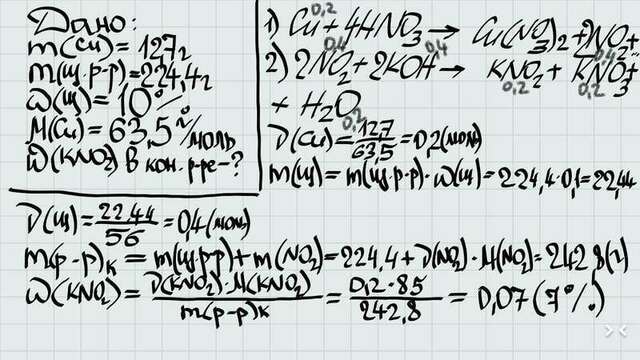 Дано:
m(Cu)=127г
m(щ.р-р)=224,4г
ω(щ)=10%
M(Cu)=63,5г/моль
ω(KNO₂) в кон. р-ре-?
0,2
1) Cu+4HNO₃→Cu(NO₃)₂+2NO₂+
0,4 0,4 0,4
2) 2NO₂+2KOH→KNO₂+KNO₃+
0,2 0,2
+H₂O
0,2
ν(Cu)=127/63,5=0,2(моль)
m(щ)=m(щ.р-р)·ω(щ)=224,4·0,1=22,44
ν(щ)=22,44/56=0,4(моль)
m(р-р)к=m(щ.р-р)+m(NO₂)=224,4+ν(NO₂)·M(NO₂)=242,8(г)
ω(KNO₂)=ν(KNO₂)·M(KNO₂)/m(р-р)к=0,2·85/242,8=0,07(7%)